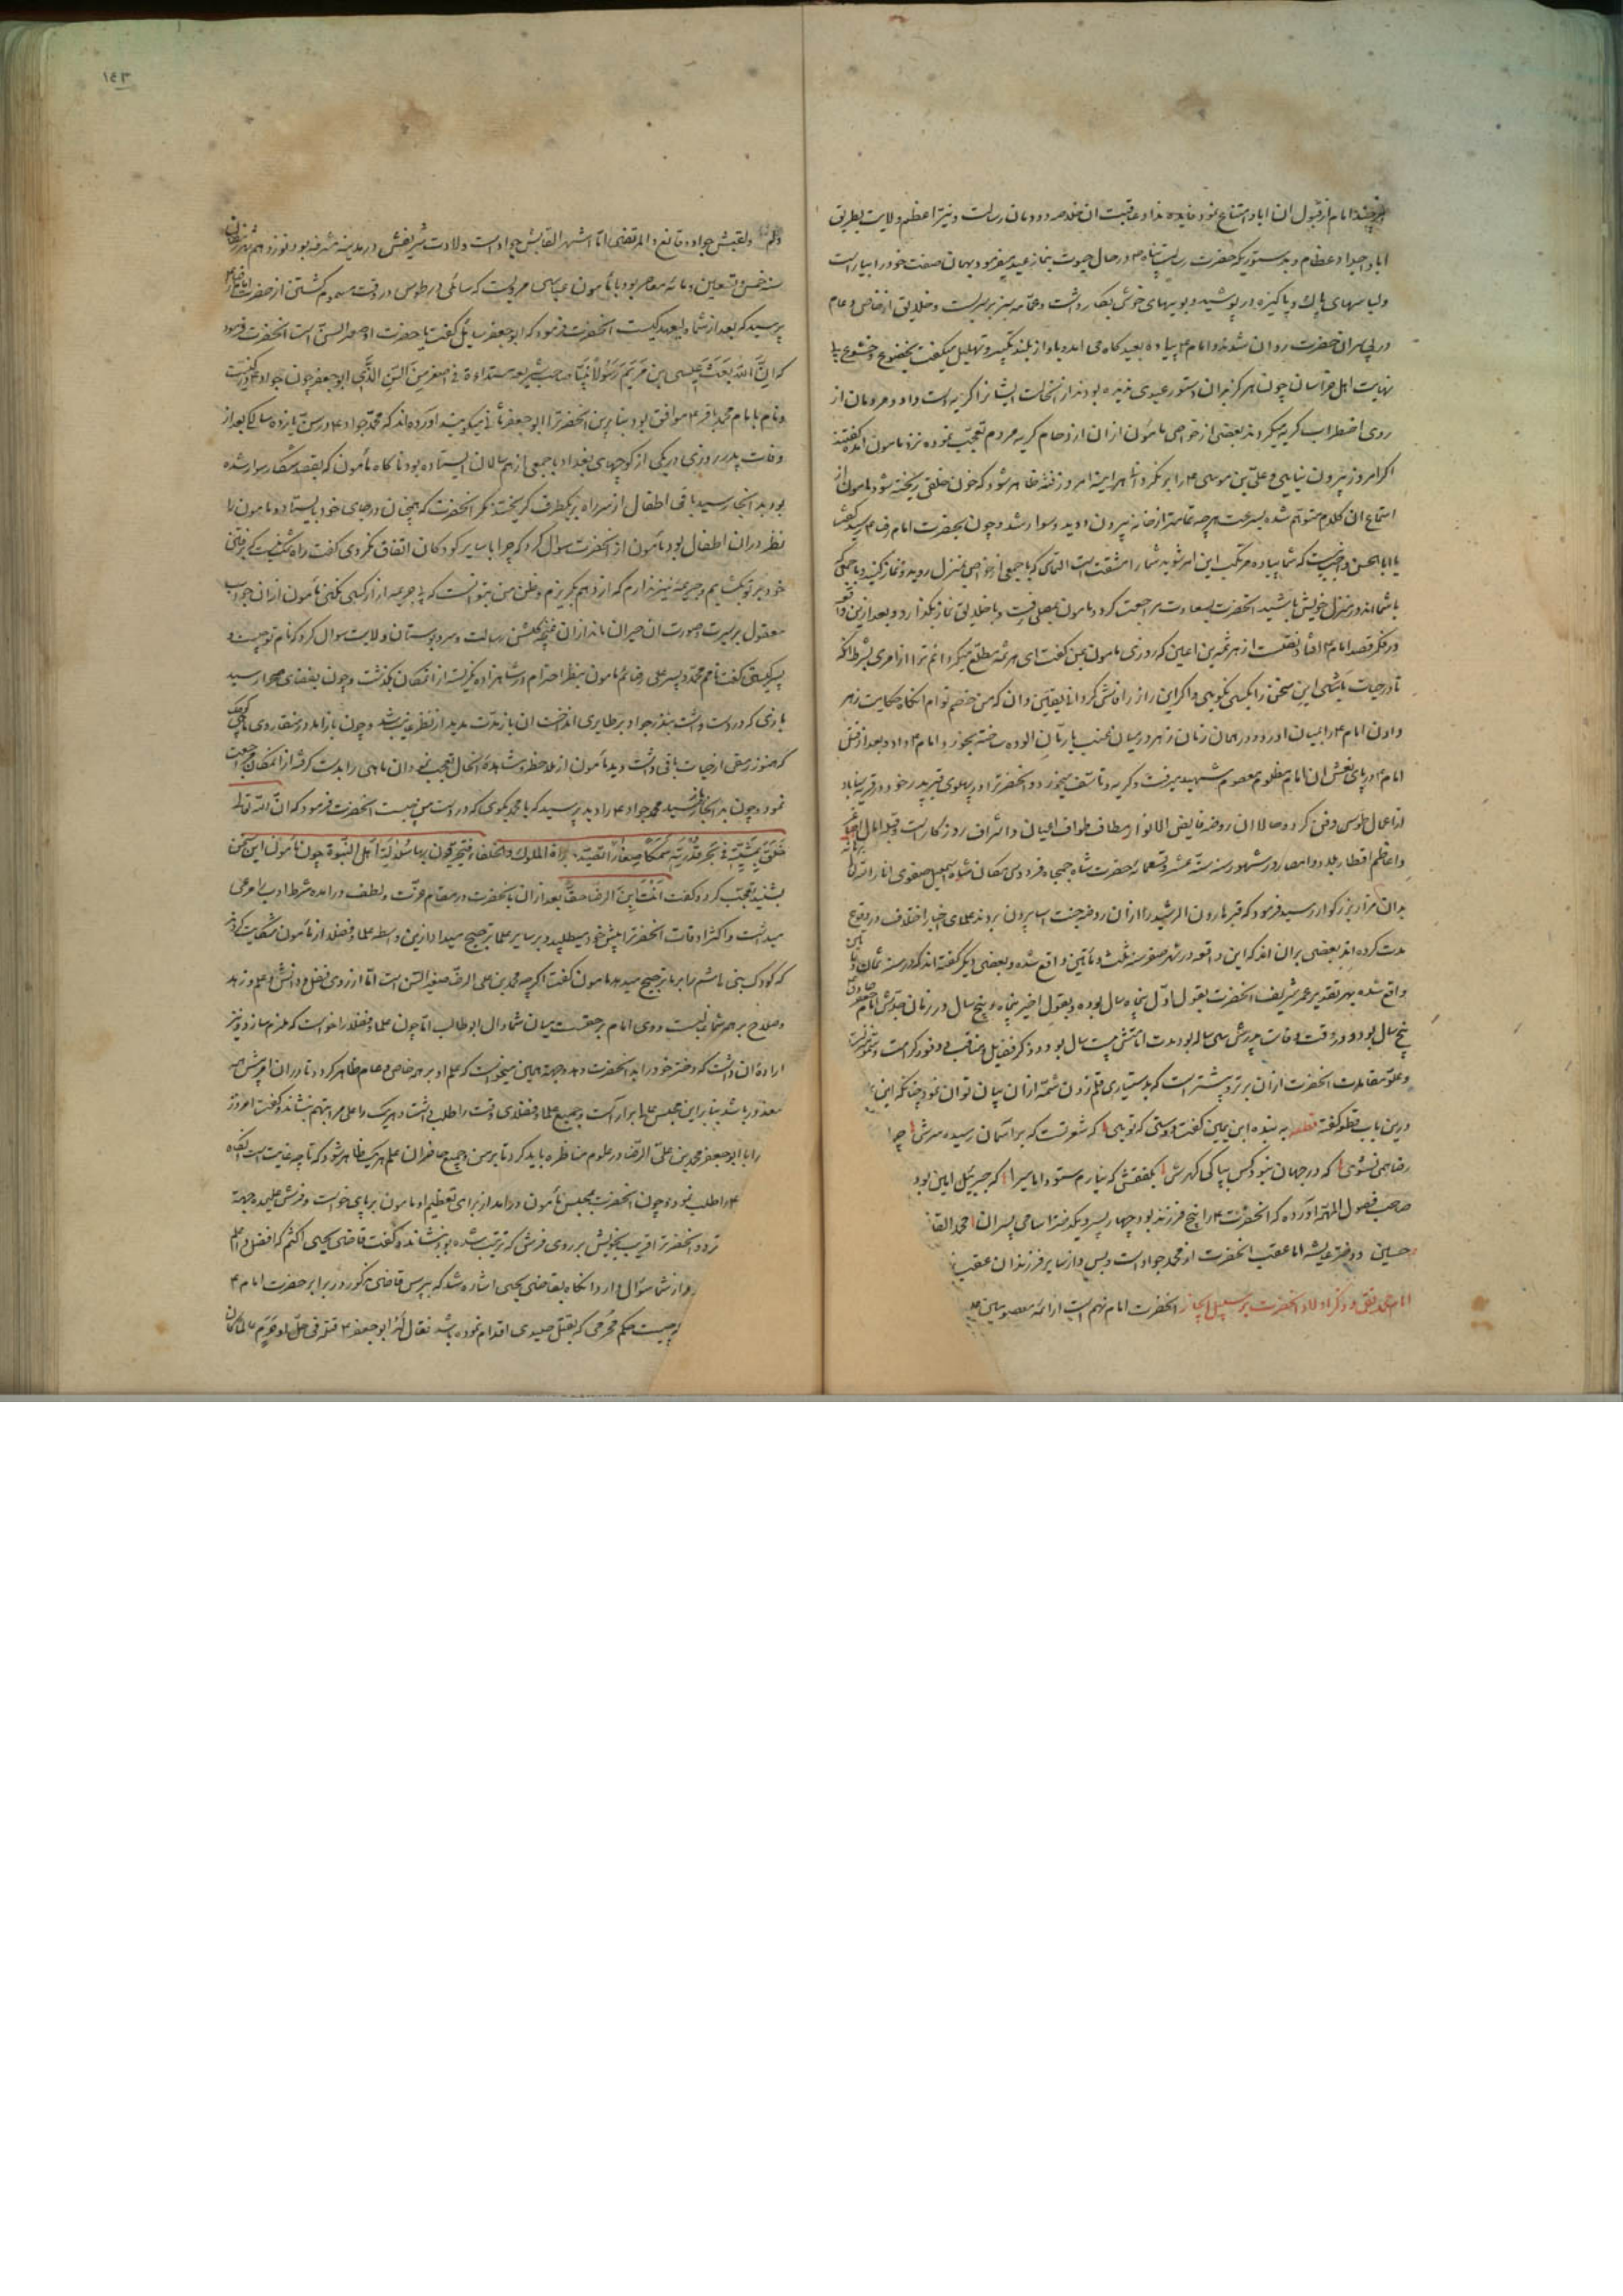 هرچند امام از قبول آن ابا و امتناع نمود فایده نداد عاقبت آن خلاصه دودمان رسالت و نیر اعظم ولایت بطریق
آبا و اجداد عظام و بدستوریکه حضرت رسالت پناه در حال حیوت بنماز عید میفرمود بهمان صفت خود را بیاراست
ولباسهای پاک و پاکیزه در پوشید و بویهای خوش بکار داشت و عمامه سبز بر سر بست و خلایق از خاص و عام
در پی سر آن حضرت روان شدند و امام پیاده بعید کاه می آمد و باواز بلند تکبیر و تهلیل میکفت بخضوع و خشوع
نهایت اهل خراسان چون هرکز بدان دستور عیدی ندیده بودند از آنحالت ایشانرا کریه دست داد و مردمان از
روی اضطراب کریه میکردند بعضی از خواص مامون از آن ازدحام کریه مردم تعجب نموده نزد مامون آمده کفتند
اکر امروز بیرون نیایی و علی بن موسی را برنکردانی هر آینه امروز فتنه ظاهر شود که خون خلقی ریخته شود مامون از
استماع آن کلام متوهم شده بسرعت هرچه تمامتر از خانه بیرون دوید و سوار شد و چون بحضرت امام رسید کفت
یا ابا الحسن واجب نیست که شما پیاده مرتکب این امر شوید شما را مشقت است التماس که با جمعی از خواص بمنزل روید و نماز کنید و با جمعی که
با شمااند در منزل خویش باشید آنحضرت بسعادت مراجعت کرد و مامون بمصلی رفت و با خلایق نماز بکذارد و بعد ازین واقعه
در فکر قصد امام افتاد نقلست از هرثمه بن اعین که روزی مامون بمن کفت ای هرثمه مطلع میکردانم ترا از امری بشرط آنکه
تا در حیات باشی این سخن را بکسی نکویی و اکر این راز را فاش کردی یقین دان که من خصم توام آنکاه حکایت زهر
دادن امام در میان آورد و در همان زمان زهر در میان عنب یا رمان آلوده ساخته بخورد امام داد و بعد از قتل
امام در پای نعش آن امام مظلوم معصوم شهید میرفت و کریه و تاسف میخورد و آنحضرترا در پهلوی قبر پدر خود در قریه سناباد
از اعمال طوس دفن کرد و حالا آن روضه فایض الانوار مطاف طواف اعیان و اشراف روزکار است و قبله آمال اصاغر
و اعاظم اقطار بلاد و امصار و در شهور سنه ستة عشر و تسعمائه حضرت شاه جمجاه فردوس مکان شاه اسمعیل صفوی انار الله برهانه
بدان مزار بزرکوار رسید فرمود که قبر هارون الرشید را از آن روضه جنت آسا بیرون بردند علمای اخبار اختلاف در وقوع
مدت کرده اند بعضی برآن اند که این واقعه در شهر صفر سنه ثلث و مأتین واقع شده و بعضی دیکر کفته اند که در سنه ثمان و مأتین
واقع شده بهر تقدیر عمر شریف آنحضرت بقول اول پنجاه سال بوده و بقول اخیر پنجاه و پنج سال در زمان جدش امام جعفر صادق
پنج سال بود و در وقت وفات پدرش سی ساله بود مدت امامتش بیست سال بود و ذکر فضایل و مناقب و وفور کرامت
وعلو مقامات آنحضرت از آن برتر و بیشتر است که بدستیاری قلم زدن شمه از آن بیان توان نمود چنانکه ابن
درین باب قطعه کفته قطعه به بنده ابن یمین کفت دوستی که تویی که شعر تست که بر آسمان رسیده سرش چرا
رضا می نشوی که در جهان نبود کس بپاکی کهرش بکفتمش که نیارم ستود امامیرا که جبرئیل امین بود
صاحب فصول المهمه آورده که آنحضرت را پنج فرزند بود چهار پسر و یکدختر اسامی پسران محمد القا
حسین و دختر عایشه اما عقب آنحضرت از محمد جواد است و بس و از سایر فرزندان عقب
امام محمد تقی و ذکر اولاد آنحضرت بر سبیل ایجاز آنحضرت امام نهم است از ائمه معصومین
۱۴۳
ولقبش جواد و قانع و المرتضی اما اشهر القابش جواد است ولادت شریفش در مدینه مشرفه بود نوزدهم شهر رمضان
سنه خمس و تسعین و مائه معاصر بود با مأمون عباسی مرویست که سائلی در طوس در وقت مسموم کشتن از حضرت امام رضا
پرسید که بعد از شما ولیعهد کیست آنحضرت فرمود که ابو جعفر سائل کفت یا حضرت او صغیر السن است آنحضرت فرمود
که إنّ الله بعث عیسی بن مریم رسولا نبیا صاحب شریعه مبتداءة فی اصغر من السن الذی ابو جعفر چون جواد در کنیت
و نام با امام محمد باقر موافق بود بنابرین آنحضرترا ابو جعفر ثانی میکویند آورده اند که محمد جواد در سن یازده سالکی بعد از
وفات پدر روزی در یکی از کوچهای بغداد با جمعی از همسالان ایستاده بود ناکاه مأمون که بقصد شکار سوار شده
بود بدانجا رسید باقی اطفال از سر راه بیکطرف کریختند مکر آنحضرت که همچنان در جای خود بایستاد و مامون را
نظر در آن اطفال بود مأمون از آنحضرت سوال کرد که چرا با سایر کودکان اتفاق نکردی کفت راه تنک نیست که برفتن
خود بر تو بکشایم و جریمه نیز ندارم که از وهم بکریزم و ظن من بتو آنست که بی جریمه آزار کسی نکنی مأمون از آن جواب
معقول بر سیرت و صورت آن حیران ماند از آن غنچه کلشن رسالت و سرو بوستان ولایت سوال کرد که نام تو چیست و
پسر کیستی کفت نامم محمد و پسر علی رضاام مامون بنظر احترام در شاهزاده نکریسته از آنمکان بکذشت و چون بفضای صحرا رسید
بازی که در دست داشت بنزد جواد بر طایری انداخت آن باز مدت مدید از نظر غایب شد و چون باز آمد در منقار وی ماهی کوچک
که هنوز رمقی از حیات باقی داشت دید مأمون از ملاحظه و مشاهده آنحال تعجب نمود آن ماهی را بدست کرفته از آنمکان مراجعت
نمود و چون بدانجا رسید محمد جواد را دید پرسید که یا محمد بکوی که در دست من چیست آنحضرت فرمود که ان الله تعالی
خلق بمشیته فی بحر قدرته سمکا صغارا تصیده بزاة الملوک و الخلفاء فیختبرون بها سلالة اهل النبوة چون مأمون این سخن
بشنید تعجب کرد و کفت انت ابن الرضا حقا بعد از آن با آنحضرت در مقام عزت و لطف درآمده شرط ادب مرعی
میداشت و اکثر اوقات آنحضرترا پیش خود میطلبید و بر سایر علما ترجیح میداد ازین واسطه علما و فضلا از مأمون شکایت کردند
که کودک بنی هاشم را بر ما ترجیح میدهد مامون کفت اکرچه محمد بن علی الرضا صغیر السن است اما از روی فضل و دانش و علم و زهد
و صلاح بر همه شما غالبست و وی امام بر حقست میان شما و آل ابو طالب اما چون علما و فضلا را خواست که ملزم سازد و نیز
اراده آن داشت که دختر خود را به آنحضرت دهد و بجهة همین میخواست که علم او بر همه خاص و عام ظاهر کردد تا در آن امر سرزنش
معذور باشد بنابراین مجلس علما بر آراست و جمیع علما و فضلای وقت را طلب داشت و هریک را علی مراتبهم بنشاند و کفت امروز
را با ابو جعفر محمد بن علی الرضا در علوم مناظره باید کرد تا بر من و جمیع حاضران علم هریک ظاهر شود که تا چه غایت است آنکه
را طلب نمود و چون آنحضرت بمجلس مأمون درآمد از برای تعظیم او مامون بر پای خواست و فرش علیحده بجهة
نزد آنحضرترا قریب بخویش بر روی فرش که ترتیب شده بود بنشاند و کفت قاضی یحیی اکثم که افضل و اعلم
از شما سوال دارد آنکاه بقاضی یحیی اشاره شد که بپرس قاضی مذکور در برابر حضرت امام
چیست حکم محرمی که بقتل صیدی اقدام نموده باشد فقال له ابو جعفر قتله فی حل او حرم عالما کان